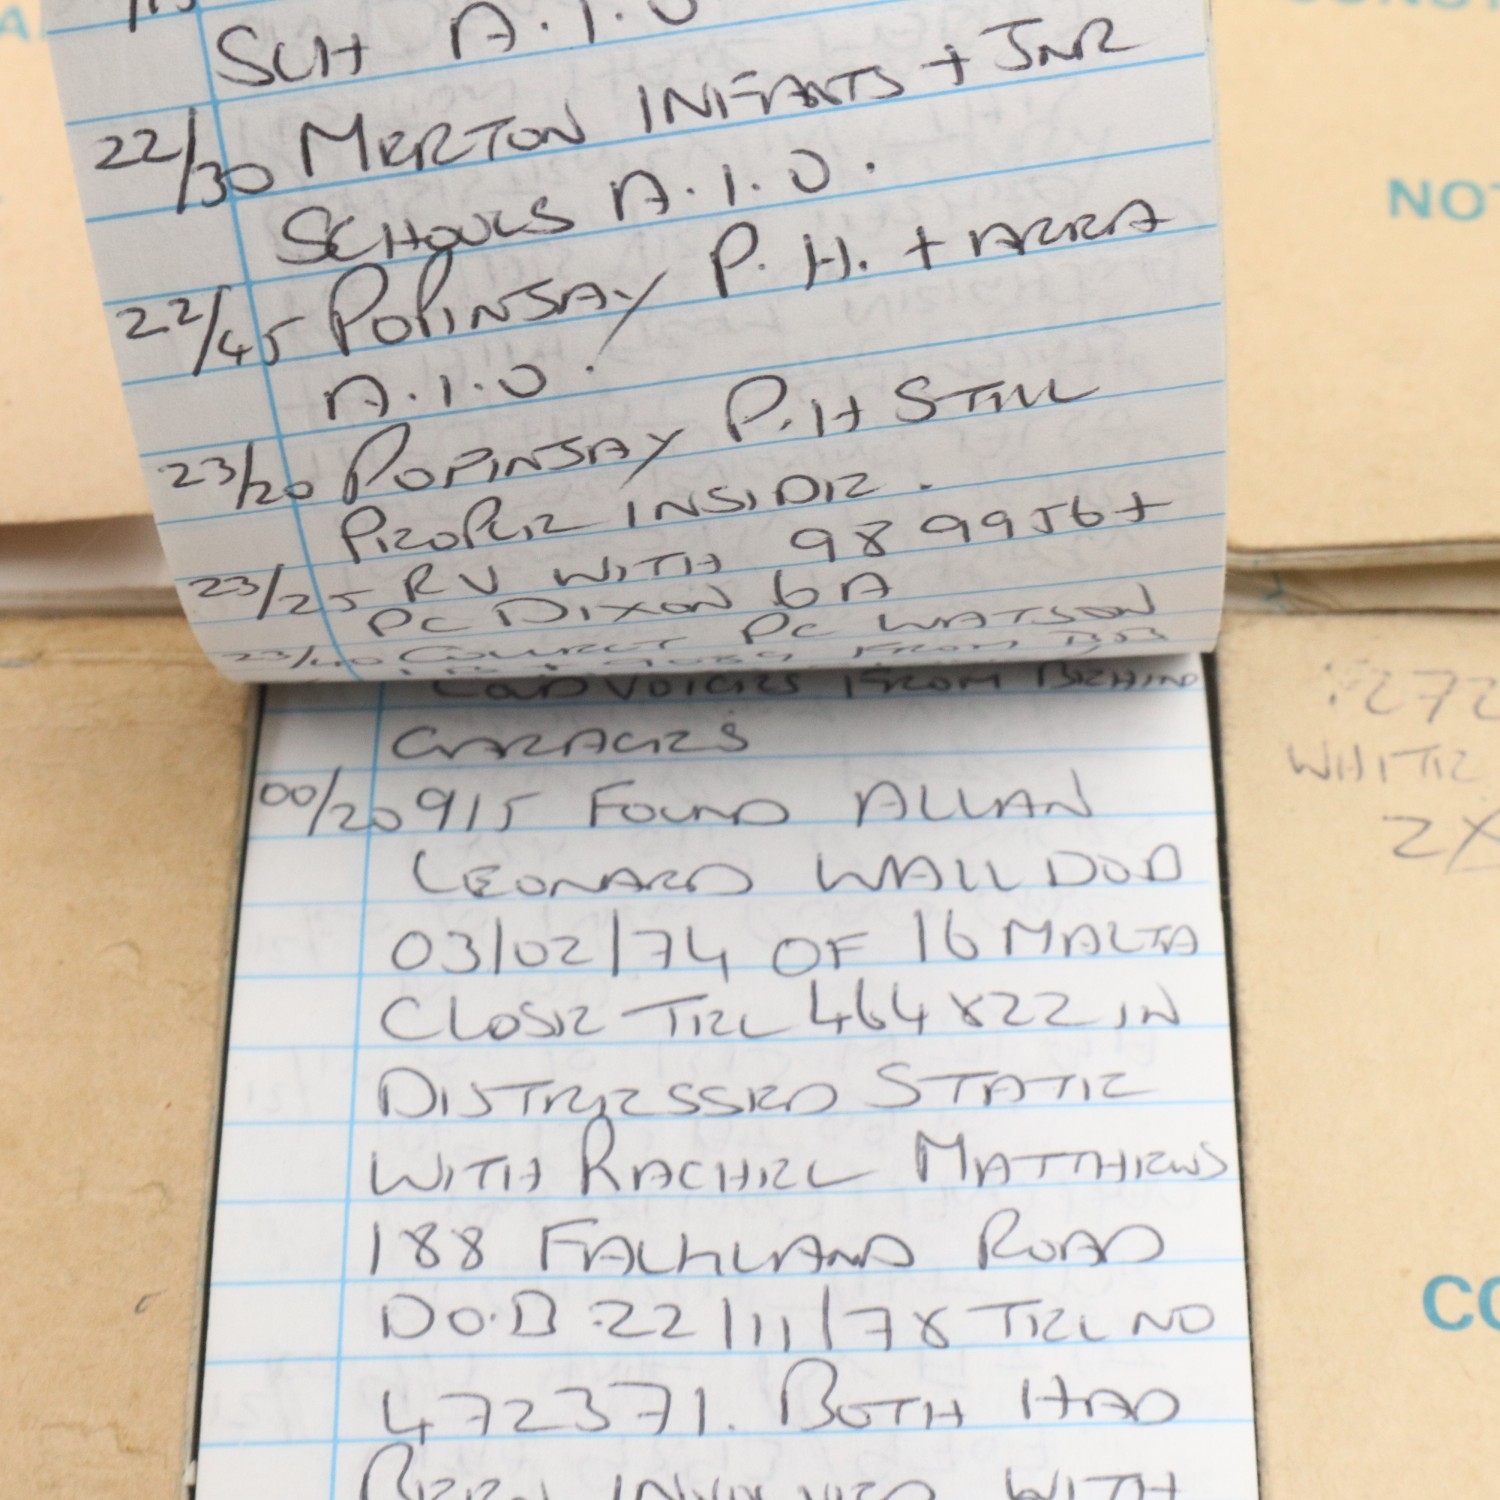 SCH A.I.O
22/30 MERTON INFANTS + JNR
SCHOOLS A.I.O.
22/45 POPINJAY P.H. + AREA
A.I.O.
23/20 POPINJAY P.H STILL
PEOPLE INSIDE.
23/25 RV WITH 98 9956 +
PC DIXON 6A
23/40 COLLECT PC WATSON
FROM
LOUD VOICES FROM BEHIND
GARAGES
00/20 915 FOUND ALLAN
LEONARD WALL DOB
03/02/74 OF 16 MALTA
CLOSE TEL 464822 IN
DISTRESSED STATE
WITH RACHEL MATTHEWS
188 FALKLAND ROAD
D.O.B 22/11/78 TEL NO
472371. BOTH HAD
BEEN INVOLVED WITH
NOT
272
WHITE
2X
CO